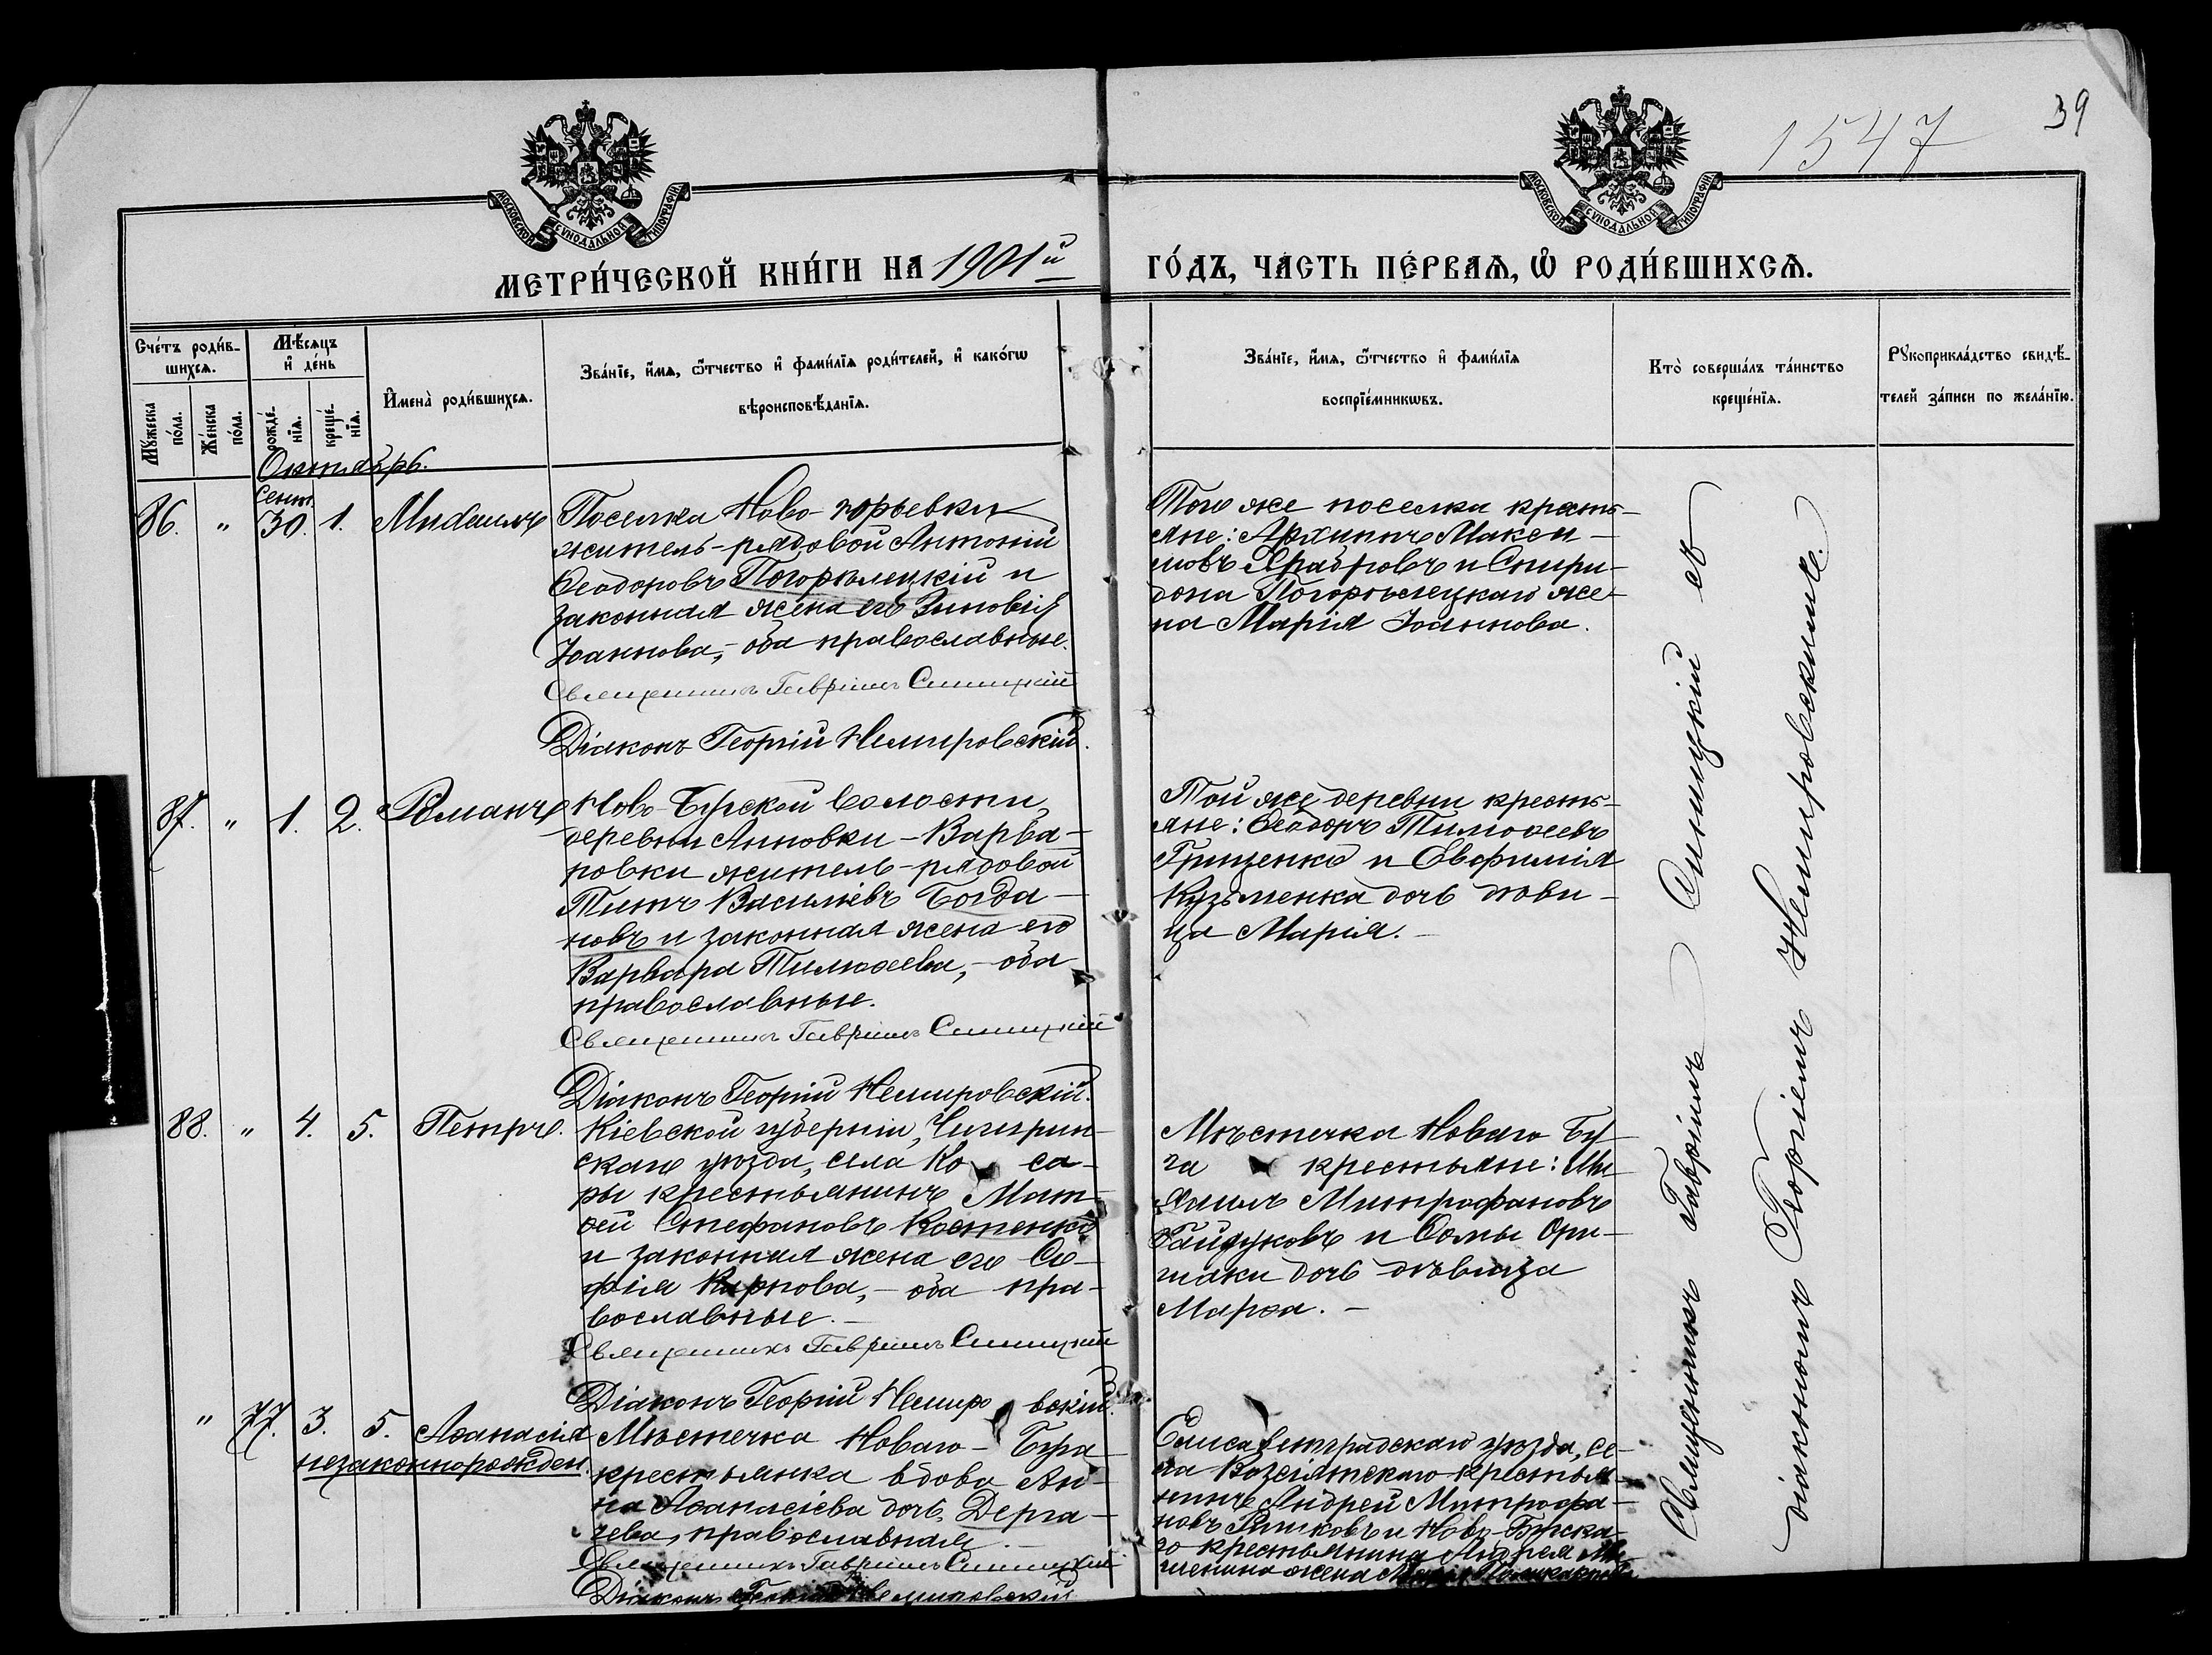 1547
39
МОСКОВСКОЙ СѴНОДАЛЬНОЙ ТИПОГРАФІИ
МОСКОВСКОЙ СѴНОДАЛЬНОЙ ТИПОГРАФІИ
МЕТРИ́ЧЕСКОЙ КНИ́ГИ НА 1901й ГО́ДЪ, ЧА́СТЬ ПЕ́РВАѦ, Ѡ҆ РОДИ́ВШИХСѦ.
Счéтъ роди́в-
шихсѧ.
Мꙋ́жеска
по́ла.
Же́нска
по́ла.
Мѣ́сѧцъ
и҆ де́нь
рожде́-
нїѧ.
креще́-
нїѧ.
И҆мена̀ роди́вшихсѧ.
Зва́нїе, и҆́мѧ, ѻ҆́тчество и҆ фами́лїѧ роди́телей, и҆ како́гѡ
вѣроисповѣ́данїѧ.
Зва́нїе, и҆́мѧ, ѻ҆́тчество и҆ фами́лїѧ
воспрїе́мникѡвъ.
Кто̀ соверша́лъ та́инство
креще́нїѧ.
Рꙋкоприкла́дство свидѣ́-
телей за́писи по жела́нїю.
Октябрь.
86. " Сент. 30. 1. Михаилъ
Поселка Ново-юрьевки
житель-рядовой Антоній
Ѳеодоровъ Погорѣлецкій и
законная жена его Зиновія
Іоаннова,- оба православные.
Священникъ Гавріилъ Синицкій
Діаконъ Георгій Немировскій.
Того же поселка кресть-
яне: Архипъ Макси-
мовъ Храбровъ и Спири-
дона Погорѣлецкаго же-
на Марія Іоаннова.
87. " 1. 2. Романъ
Ново-Бугской волости,
деревни Анновки-Варва-
ровки житель-рядовой
Титъ Васильевъ Богда-
новъ и законная жена его
Варвара Тимоѳеева,- оба
православные.
Священникъ Гавріилъ Синицкій
Діаконъ Георгій Немировскій.
Той же деревни кресть-
яне: Ѳеодоръ Тимоѳеевъ
Грищенко и Евфимія
Кузьменка дочь дѣви-
ца Марія.-
88. " 4. 5. Петръ.
Кіевской губерніи, Чигирин-
скаго уѣзда, села Ко са-
ры крестьянинъ Мат-
ѳей Стефановъ Костенко
и законная жена его Со-
фія Карпова,- оба пра-
вославные.-
Священникъ Гавріилъ Синицкій
Діаконъ Георгій Немиро вскій.
Мѣстечка Новаго Бу-
га крестьяне: Ми-
хаилъ Митрофановъ
Гайдуковъ и Ѳомы Ори-
шаки дочь дѣвица
Марѳа.-
" 77. 3. 5. Аѳанасія
незаконнорожден.
Мѣстечка Новаго-Буга
крестьянка вдова Ан-
на Аѳанасіева дочь Дерга-
чева, православная.-
Священникъ Гавріилъ Синицкій
Діаконъ Георгій Немировскій
Елисаветградскаго уѣзда, се-
ла Возсіятскаго крестья-
нинъ Андрей Митрофа-
новъ и Ново-Бугска-
го крестьянина Андрея
жена
Священникъ Гавріилъ Синицкій съ
діакономъ Георгіемъ Немировскимъ.